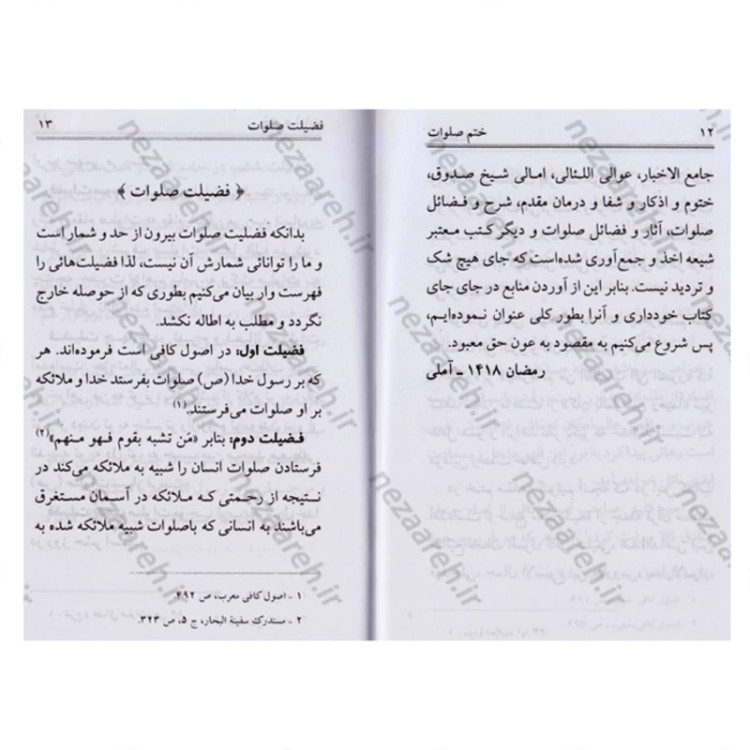 ۱۲ ختم صلوات
جامع الاخبار، عوالی اللئالی، امالی شیخ صدوق،
ختوم و اذکار و شفا و درمان مقدم، شرح و فضائل
صلوات، آثار و فضائل صلوات و دیگر کتب معتبر
شیعه اخذ و جمع‌آوری شده‌است که جای هیچ شک
و تردید نیست. بنابر این از آوردن منابع در جای جای
کتاب خودداری و آنرا بطور کلی عنوان نموده‌ایم،
پس شروع می‌کنیم به مقصود به عون حق معبود.
رمضان ۱۴۱۸ ـ آملی
فضیلت صلوات ۱۳
﴿ فضیلت صلوات ﴾
بدانکه فضلیت صلوات بیرون از حد و شمار است
و ما را توانائی شمارش آن نیست، لذا فضیلت‌هائی را
فهرست وار بیان می‌کنیم بطوری که از حوصله خارج
نگردد و مطلب به اطاله نکشد.
فضیلت اول: در اصول کافی است فرموده‌اند. هر
که بر رسول خدا (ص) صلوات بفرستد خدا و ملائکه
بر او صلوات می‌فرستند.(۱)
فضیلت دوم: بنابر «مَن تشبه بقوم فهو منهم»(۲)
فرستادن صلوات انسان را شبیه به ملائکه می‌کند در
نتیجه از رحمتی که ملائکه در آسمان مستغرق
می‌باشند به انسانی که باصلوات شبیه ملائکه شده به
۱ - اصول کافی معرب، ص ۴۹۲.
۲ - مستدرک سفینة البحار، ج ۵، ص ۳۲۳.
nezaareh.ir